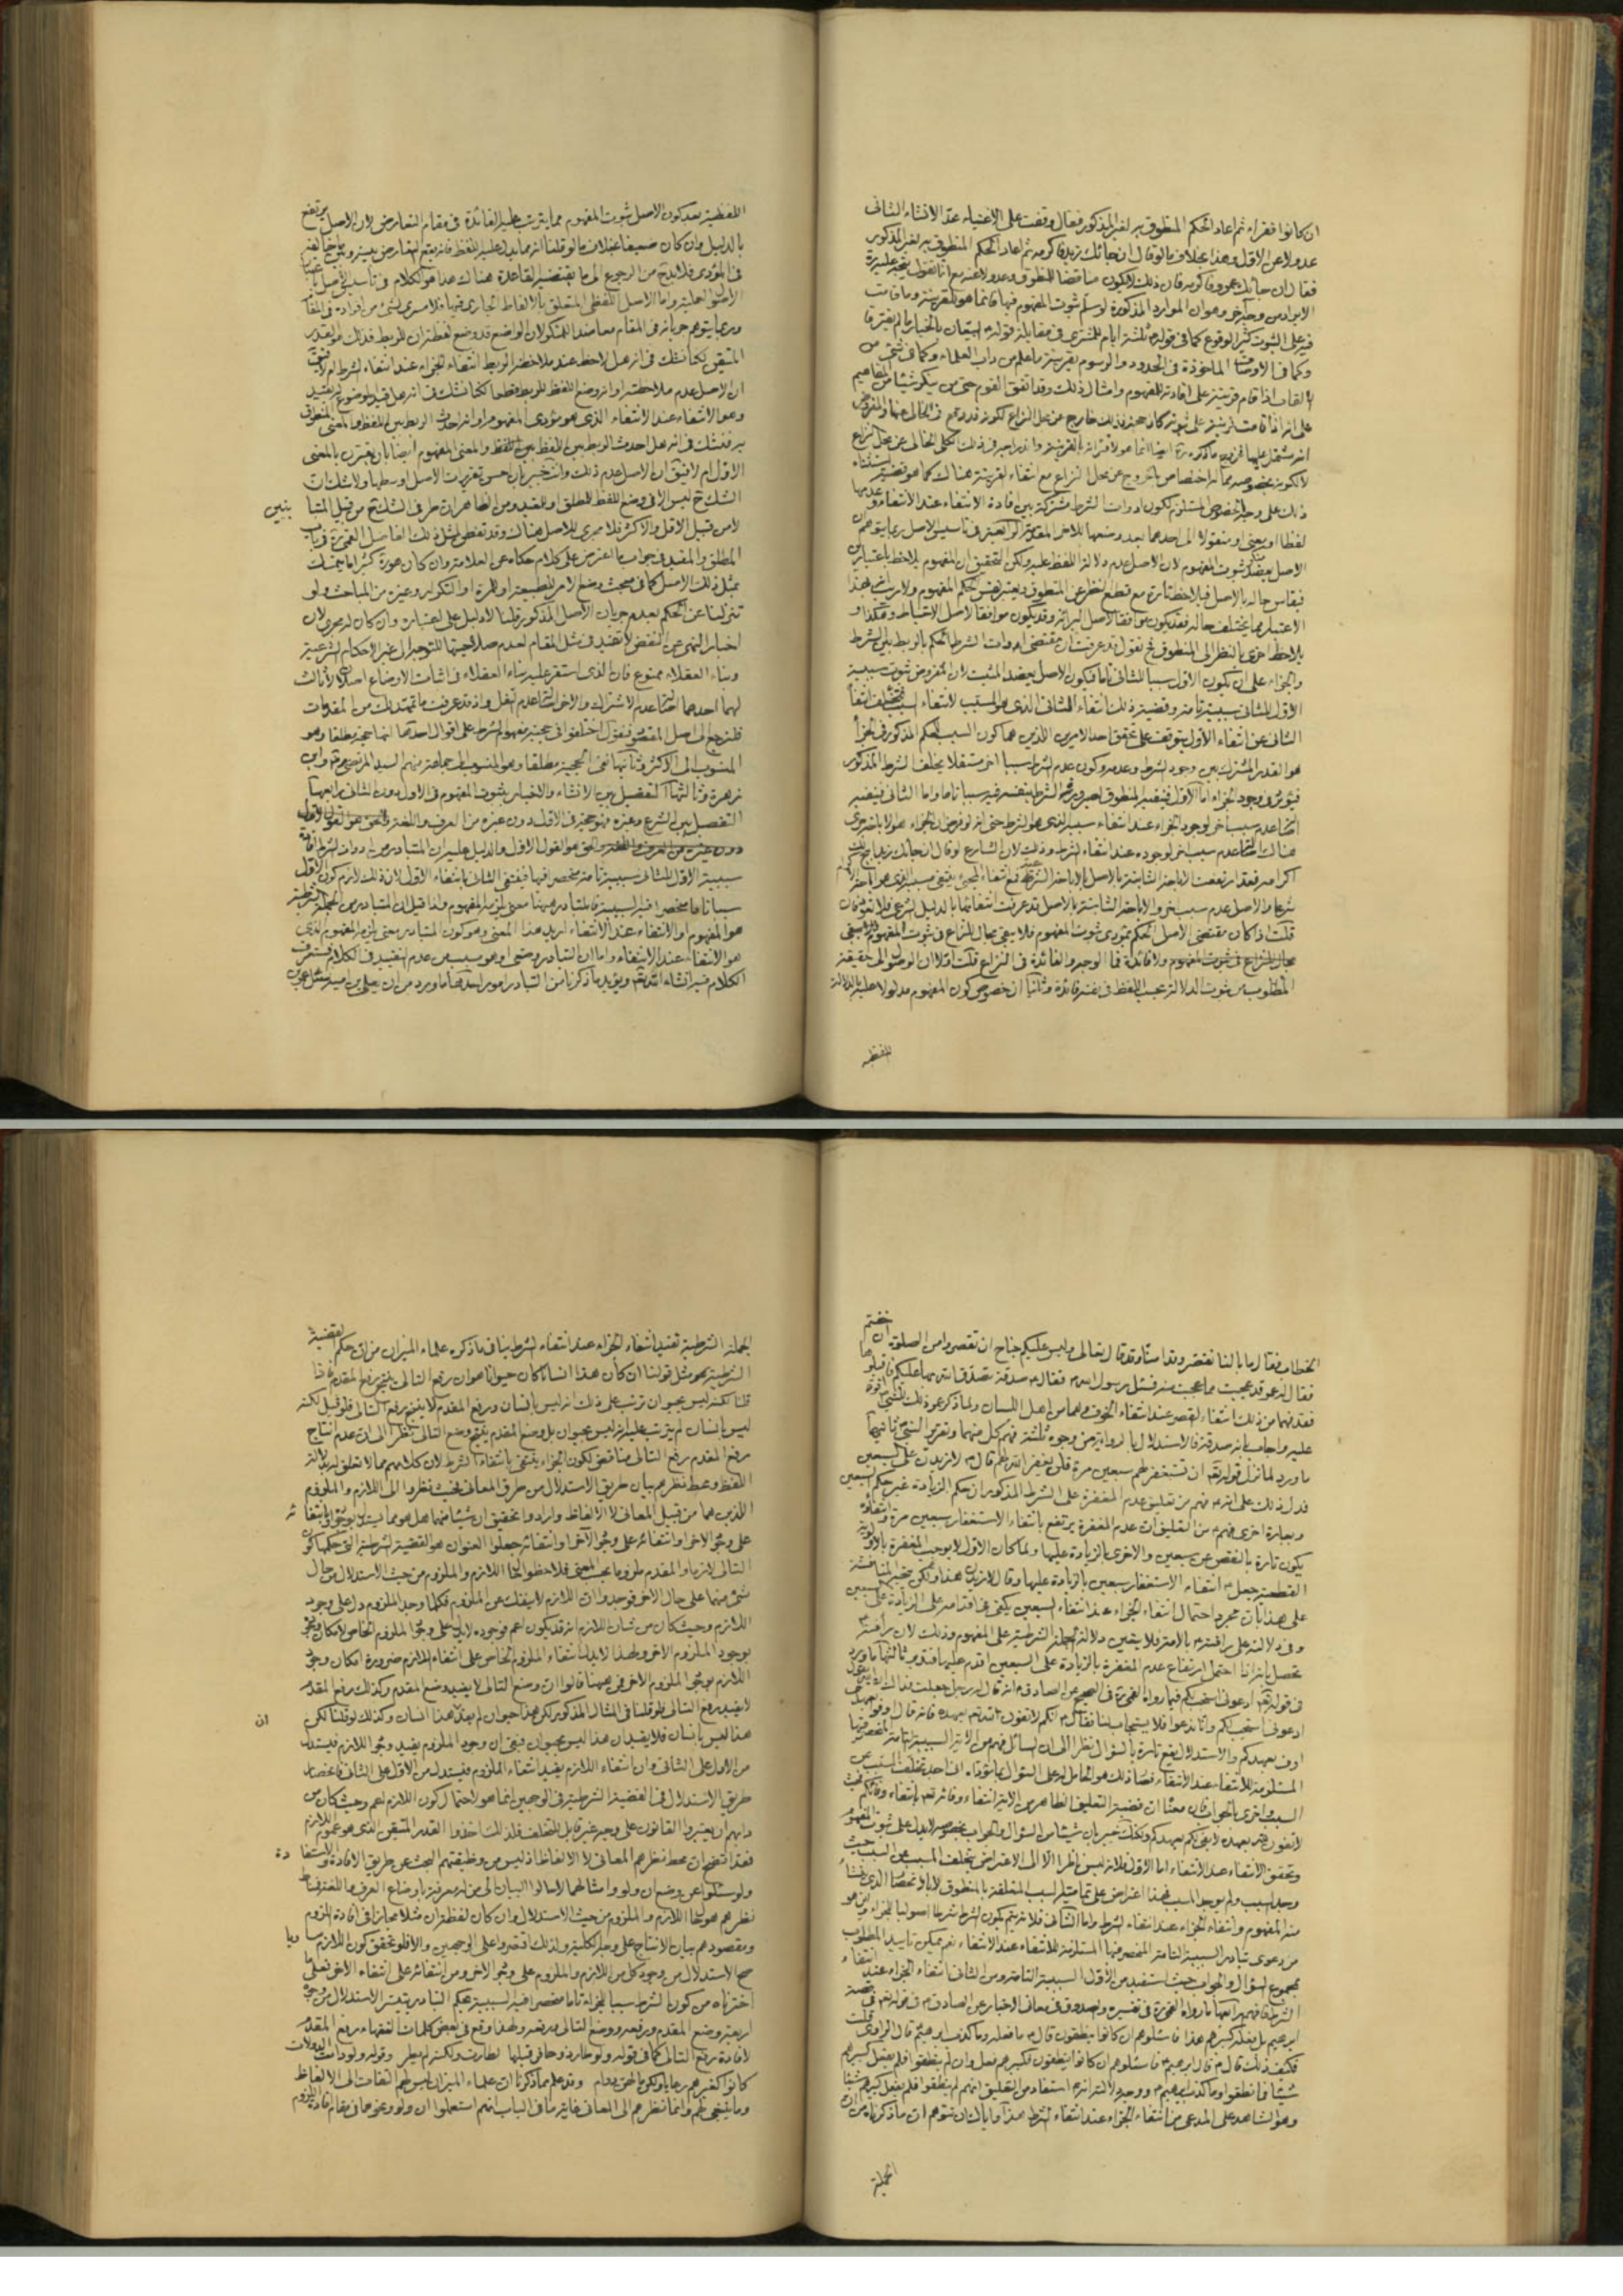 ان كانوا فقراء ثم اعاد الحكم المنطوق به لغير المذكور فقال وقفت على الاغنياء عد الانشاء الثانى
عدولا عن الاول وهذا بخلاف ما لو قال ان جائك زيد فاكرمه ثم اعاد الحكم المنطوق به لغير المذكور
فقال ان جائك عمرو فاكرمه فان ذلك لا يكون مناقضا للمنطوق وعدولا عنه
الايراد من وجه آخر وهو ان الموارد المذكورة لو سلم ثبوت المفهوم فيها فانما هو للقرينة وما قامت
فيه على الثبوت كثير الوقوع كما فى قوله ثلثة ايام للمشترى فى مقابلة قوله البيعان بالخيار ما لم يفترقا
وكما فى الاوصاف الماخوذة فى الحدود والرسوم بقرينة ما علم من داب العلماء
الالقاب اذا قام قرينة على افادته للمفهوم وامثال ذلك وقد اتفق القوم حتى من ينكر شيئا من المفاهيم
على انه اذا قامت قرينة على ثبوته كان حجة فذلك خارج عن محل النزاع
ذلك على وجه الخصوص المستلزم لكون ادوات الشرط مشتركة بين افادة الانتفاء عند الانتفاء وعدمها
الاصل يعضد ثبوت المفهوم لان الاصل عدم دلالة اللفظ عليه ولكن التحقيق ان المفهوم يلاحظ باعتبارين
الاعتبار مما يختلف حاله فقد يكون موافقا لاصل البرائة وقد يكون موافقا لاصل الاحتياط وهكذا و
يلاحظ اخرى بالنظر الى المنطوق ثم نقول قد عرفت ان مقتضى ادوات الشرط الحكم بالربط بين الشرط
والجزاء على ان يكون الاول سببا للثانى تاما فيكون الاصل يعضد المثبت لان المفروض ثبوت سببية
الاول للثانى سببية تامة وقضية ذلك انتفاء الثانى الذى هو المسبب لانتفاء السبب
الثانى عن انتفاء الاول يتوقف على تحقق احد الامرين اللذين هما كون السبب للحكم المذكور فى الجزاء
هو القدر المشترك بين وجود الشرط وعدمه وكون عدم الشرط سببا اخر مستقلا يخلف الشرط المذكور
فيؤثر فى وجود الجزاء اما الاول فينفيه المنطوق لصيرورة الشرط بنفسه فيه سببا تاما واما الثانى فينفيه
اصالة عدم سبب آخر لوجود الجزاء عند انتفاء سببه الذى هو الشرط حتى انه لو فرض ان الجزاء هو الاباحة جرى
هناك اصالة عدم سبب اخر لوجوده عند انتفاء الشرط وذلك لان الشارع لو قال ان جائك زيد يباح لك
قلت اذا كان مقتضى الاصل الحكم بمؤدى ثبوت المفهوم فلا يبقى مجال للنزاع فى ثبوت المفهوم
مجال للنزاع فى ثبوت المفهوم ولا فائدة فما الوجه والفائدة فى النزاع قلت اولا ان الوصول الى حقيقة
المطلوب من ثبوت الدلالة بحسب اللفظ فى نفسه فائدة وثانيا ان خصوص كون المفهوم مدلولا عليه بالدلالة
اللفظية
اللفظية بعد كون الاصل ثبوت المفهوم مما يترتب عليه الفائدة فى مقام التعارض لان الاصل يرتفع
بالدليل وان كان ضعيفا بخلاف ما لو قلنا انه مما يدل عليه اللفظ فانه يقع التعارض بينه وبين ما يخالفه
فى المؤدى فلا بد ح من الرجوع الى ما يقتضيه القاعدة هناك هذا هو الكلام فى تاسيس الاصل
الاصول العملية واما الاصل اللفظى المتعلق بالالفاظ الجارى فيها فلا مسرى لشئ من افراده فى المقام
وربما يتوهم جريانه فى المقام معاضدا للمنكر لان الواضع قد وضع لفظة ان للربط فذلك هو القدر
المتيقن لكنا نشك فى انه هل لاحظ عند ملاحظة الربط انتفاء الجزاء عند انتفاء الشرط ام لا
ان الاصل عدم ملاحظته او انه وضع اللفظ للربط قطعا لكنا نشك فى انه هل قيد الموضوع له بقيد
وهو الانتفاء عند الانتفاء الذى هو مؤدى المفهوم
به فنشك فى انه هل احدث الربط بين اللفظ والمعنى المفهوم ايضا بان يقترب بالمعنى
الاول ام لا فيق ان الاصل عدم ذلك وانت خبير بان احسن تقريرات الاصل اوسطها ولا شك ان
الشك ح ليس الا فى وضع اللفظ للمطلق او المقيد ومن الظاهر ان طرفى الشك ح من قبيل المتبا
ينين
لا من قبيل الاقل والاكثر فلا مجرى للاصل هناك وقد تفطن لمثل ذلك الفاضل القمى ره فى باب
المطلق والمقيد فى جواب ما اعترض على كلام حكاه عن العلامة وان كان هو ره كثيرا ما يتمسك
بمثل ذلك الاصل كما فى مبحث وضع الامر للطبيعة او للمرة او التكرار وغيره من المباحث ولو
تنزلنا عن الحكم بعدم جريان الاصل المذكور قلنا لا دليل على اعتباره وان كان له مجرى لان
اخبار النهى عن النقض لا تفيد فى مثل المقام لعدم صلاحيتها للتوجه الى غير الاحكام الشرعية
وبناء العقلاء ممنوع فان الذى استقر عليه بناء العقلاء فى اثبات الاوضاع اصلان لا ثالث
لهما احدهما اصالة عدم الاشتراك والاخر اصالة عدم النقل واذ قد عرفت ما تمهد لك من المقدمات
فلنرجع الى اصل المقصود فنقول اختلفوا فى حجية مفهوم الشرط على اقوال احدها انها حجة مطلقا وهو
المنسوب الى الاكثر وثانيها نفى الحجية مطلقا وهو المنسوب الى جماعة منهم السيد المرتضى ره وابن
زهرة وثالثها التفصيل بين الانشاء والاخبار بثبوت المفهوم فى الاول دون الثانى رابعها
التفصيل بين الشرع وغيره فهو حجة فى الاول دون غيره من العرف واللغة والحق هو القول الاول
دون غيره من العرف واللغة والحق هو القول الاول والدليل عليه ان المتبادر من ادوات الشرط افادة
سببية الاول للثانى سببية تامة منحصرا فيها فينتفى الثانى بانتفاء الاول لان ذلك لازم كون الاول
سببا تاما منحصرا فيه السببية فالمتبادر ههنا معنى يلزمه المفهوم ولذا قيل ان المتبادر من الجملة الشرطية
هو المفهوم او الانتفاء عند الانتفاء اريد هذا المعنى وهو كون المتبادر معنى يلزمه المفهوم الذى
هو الانتفاء عند الانتفاء واما ان التبادر وضعى او هو مسبب من عدم التقييد فى الكلام
الكلام فيه انشاء الله تع ويؤيد ما ذكرنا من التبادر امور احدها ما ورد من ان يعلى بن امية سئل عن
الخطاب فقال ما بالنا نقصر وقد امنا وقد قال الله تعالى وليس عليكم جناح ان تقصروا من الصلوة ان
خفتم
فقال له عمر قد عجبت مما عجبت منه فسئل رسول الله ص فقال ص صدقة تصدق الله بها عليكم فاقبلوها
ففهما من ذلك انتفاء القصر عند انتفاء الخوف وهما من اهل اللسان ولما ذكر عمر ذلك للنبى ص اقره
عليه واجاب بانه صدقة فالاستدلال بالرواية من وجوه ثلثة فهم كل منهما وتقرير النبى ص ثانيها
ما ورد لما نزل قوله تع ان تستغفر لهم سبعين مرة فلن يغفر الله لهم قال ص لازيدن على السبعين
فدل ذلك على انه ص فهم من تعليق عدم المغفرة على الشرط المذكور ان حكم الزيادة غير حكم السبعين
وبعبارة اخرى فهم ص من التعليق ان عدم المغفرة يرتفع بانتفاء الاستغفار سبعين مرة وانتفاؤه
يكون تارة بالنقص عن سبعين والاخرى بالزيادة عليها ولما كان الاول لا يوجب المغفرة بالاولوية
القطعية جعل ص انتفاء الاستغفار سبعين بالزيادة عليها وقال لازيدن هذا ولكن يتجه المناقشة
على هذا بان مجرد احتمال انتفاء الجزاء عند انتفاء السبعين يكفى فى اقدامه على الزيادة على السبعين
وفى دلالته على رافته ص بالامة فلا يتعين دلالة الجملة الشرطية على المفهوم وذلك لان رافته
تحصل بانه اذا احتمل ارتفاع عدم المغفرة بالزيادة على السبعين اقدم عليها فتدبر ثالثها ما ورد
فى قوله تع ادعونى استجب لكم فيما رواه القمى ره فى الصحيح عن الصادق ع انه قال له رجل جعلت فداك ان الله يقول
ادعونى استجب لكم وانا ندعو فلا يستجاب لنا فقال ع انكم لا تفون لله تع بعهده فانه قال اوفوا بعهدى
اوف بعهدكم والاستدلال يقع تارة بالسؤال نظرا الى ان السائل فهم من الاية السببية التامة المنحصر فيها
المستلزمة للانتفاء عند الانتفاء
السبب واخرى بالجواب
وتحقق الانتفاء عند الانتفاء اما الاول فلانه ليس ناظرا الا الى الاعتراض بتخلف المسبب عن السبب حيث
وجد السبب ولم يوجد المسبب فهذا اعتراض على تمامية السبب المتعلقة بالمنطوق
من دعوى تبادر السببية التامة المنحصر فيها المستلزمة للانتفاء عند الانتفاء نعم يمكن تاييد المطلوب
بمجموع السؤال والجواب حيث استفيد من الاول السببية التامة ومن الثانى انتفاء الجزاء عند انتفاء
الشرط فافهم رابعها ما رواه القمى ره فى تفسيره والصدوق فى معانى الاخبار عن الصادق ع فى قوله تع فى قصة
ابرهيم بل فعله كبيرهم هذا فاسئلوهم ان كانوا ينطقون قال ع ما فعله وما كذب ابرهيم قال الراوى قلت
فكيف ذلك قال ع قال ابرهيم ع فاسئلوهم ان كانوا ينطقون فكبيرهم فعل وان لم ينطقوا فلم يفعل كبيرهم
شيئا فما نطقوا وما كذب ابرهيم ع ووجه الدلالة انه ع استفاد من التعليق انهم لم ينطقوا فلم يفعل كبيرهم شيئا
وهو الشاهد على المدعى من انتفاء الجزاء عند انتفاء الشرط هذا واياك ان تتوهم ان ما ذكرناه من ان
الجملة
الجملة الشرطية تفيد انتفاء الجزاء عند انتفاء الشرط ينافى ما ذكره علماء الميزان من ان حكم القضية
الشرطية نحو مثل قولنا ان كان هذا انسانا كان حيوانا هو ان رفع التالى ينتج رفع المقدم فاذا
قلنا لكنه ليس بحيوان ترتب على ذلك انه ليس بانسان ورفع المقدم لا ينتج رفع التالى فلو قيل لكنه
ليس بانسان لم يترتب عليه انه ليس بحيوان بل وضع المقدم ينتج وضع التالى نظرا الى ان عدم انتاج
رفع المقدم رفع التالى مناقض لكون الجزاء ينتفى بانتفاء الشرط لان كلامهم مما لا تعلق له بدلالة
اللفظ ومحط نظرهم بيان طريق الاستدلال من طرق المعانى بحيث نظروا الى اللازم والملزوم
اللذين هما من قبيل المعانى لا الالفاظ وارادوا تحقيق ان شيئا منهما هل هو مما يستدل بوجوده او بانتفائه
على وجود الاخر او انتفائه على وجود الآخر او انتفائه جعلوا العنوان هو القضية الشرطية التى حكمها كون
التالى لازما والمقدم ملزوما بحسب المعنى فلاحظوا لحاظ اللازم والملزوم من حيث الاستدلال من حال
شئ منهما على حال الاخر فوجدوا ان اللازم لا ينفك عن الملزوم فكلما وجد الملزوم دل على وجود
اللازم وحيث كان من شان اللازم انه قد يكون اعم فوجوده لا يدل على وجود الملزوم الخاص لامكان وجوده
بوجود الملزوم الاخر ولهذا لا يدل انتفاء الملزوم الخاص على انتفاء اللازم ضرورة امكان وجود
اللازم بوجود الملزوم الاخر فمن ههنا قالوا ان وضع التالى لا يفيد وضع المقدم وكذلك رفع المقدم
لا يفيد رفع التالى فلو قلنا فى المثال المذكور لكن هذا حيوان لم يفد ان هذا انسان وكذلك لو قلنا لكن
ان
هذا ليس بانسان فلا يفيد ان هذا ليس بحيوان فبقى ان وجود الملزوم يفيد وجود اللازم فيستدل
من الاول على الثانى وان انتفاء اللازم يفيد انتفاء الملزوم فيستدل من الاول على الثانى فانحصار
طريق الاستدلال فى القضية الشرطية فى الوجهين انما هو لاحتمال كون اللازم اعم وحيث كان من
دابهم ان يعتبروا القانون على وجه غير قابل للتخلف فلذلك اخذوا القدر المتيقن الذى هو عموم اللازم
فقد اتضح ان محط نظرهم المعانى لا الالفاظ اذ ليس من وظيفتهم البحث عن طريق الافادة والاستفا
دة
ولو سئلوا عن وضع ان ولو وامثالهما لاحالوا البيان الى من له معرفة باوضاع العرف واللغة فمناط
نظرهم هو لحاظ اللازم والملزوم من حيث الاستدلال وان كان لفظة ان مثلا مجازا فى افادة اللزوم
ومقصودهم بيان الانتاج على وجه الكلية ولذلك اقتصروا على الوجهين والا فلو تحقق كون اللازم مساويا
صح الاستدلال من وجود كل من اللازم والملزوم على وجود الاخر ومن انتفائه على انتفاء الاخر فعلى ما
اخترناه من كون الشرط سببا للجزاء تاما منحصرا فيه السببية بحكم التبادر يتيسر الاستدلال من وجوه
اربعة وضع المقدم ورفعه ووضع التالى ورفعه ولهذا وقع فى بعض كلمات الفقهاء رفع المقدم
لافادة رفع التالى كما فى قوله ولو طار ذو حافر قبلها لطارت ولكنه لم يطر وقوله ولو دامت الدولات
كانوا كغيرهم رعايا ولكن ما لهن دوام وقد علم مما ذكرنا ان علماء الميزان ليس لهم التفات الى الالفاظ
وما ينبغى لهم وانما نظرهم الى المعانى فغاية ما فى الباب انهم استعملوا ان ولو ونحوهما فى مقام افادة اللزوم